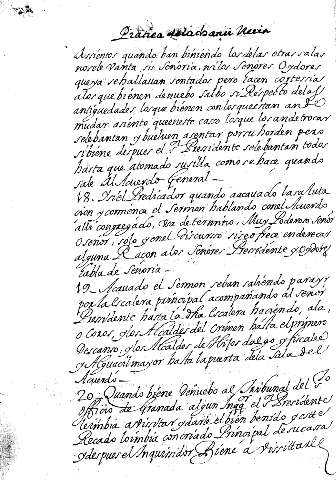 Pratica de la chancilleria
Assientos quando ban biniendo los de las otras salas
no se le vanta, su Senoria, ni los Senores Oydores
que ya se hallavan sentados pero hacen cortessia
a los que bienen de nuebo salbo si Respeto de las
antiguedades los que bienen con los que estan an de
mudar asiento que en este caso los que lo an de trocar
se lebantan y buelven a sentar por su horden pero
si biene despues el Sr Presidente se lebantan todos
hasta que a tomado su silla, como se hace quando
sale del Acuerdo General
18. I si el Predicador quando a acavado la saluta
cion y comienca el sermon hablando con el Acuerdo
alli congregado, usa de termino, Muy Poderoso senor
o senor, solo y en el discurso si se ofrece enderecar
alguna Racon a los Senores Pressidente y Oydores
habla de Senoria
19. Acavado el Sermon se ban saliendo para yr
por la escalera principal acompañando al señor
Presidente hasta la dha escalera haciendo, ala,
o Coros, y los Alcaldes del Crimen hasta el primero
Descanso, y los Alcaldes de Hijos dalgo y fiscales
y Alguacil mayor hasta la puerta de la Sala del
Acuerdo
20. Quando biene de nuebo al Tribunal del Sto
officio de Granada algun Inqor el Sr Presidente
le imbia a vissitar y dar el bien benido y este
Recado lo imbia con criado Principal de su casa
y despues el Inquisidor Biene a vissitarle